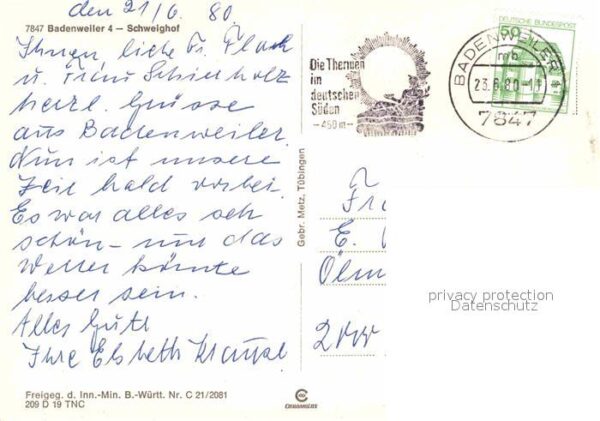 den 21/6. 80.
7847 Badenweiler 4 — Schweighof
Ihnen, liebe Fr.
u.
herzl. Grüsse
aus Badenweiler.
Nun ist unsere
Zeit bald vorbei.
Es war alles sehr
schön – nur das
Wetter könnte
besser sein.
Alles Gute
Ihre Elsbeth
Freigeg. d. Inn.-Min. B.-Württ. Nr. C 21/2081
209 D 19 TNC
Gebr. Metz, Tübingen
Die Thermen
im
deutschen
Süden
— 450 m —
BADENWEILER
mb
23.6.80-11
7847
DEUTSCHE BUNDESPOST
50
Fr
E.
privacy protection
Datenschutz